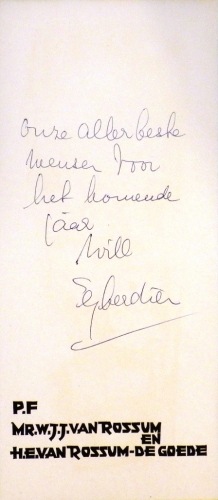 onze allerbeste
wensen voor
het komende
jaar
Will
Egberdien
P.F
MR.W.J.J.VAN ROSSUM
EN
H.E.VAN ROSSUM-DE GOEDE